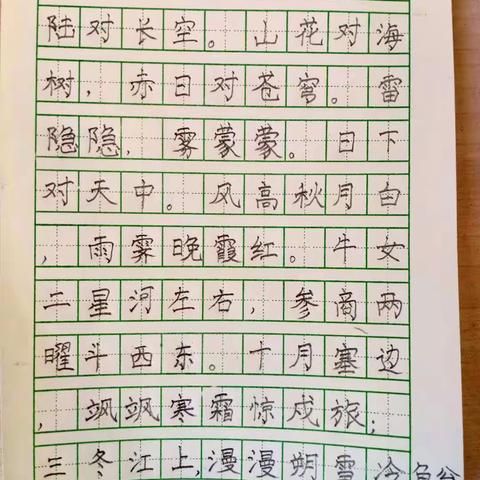 陆对长空。山花对海
树，赤日对苍穹。雷
隐隐，雾蒙蒙。日下
对天中。风高秋月白
，雨霁晚霞红。牛女
二星河左右，参商两
曜斗西东。十月塞边
，飒飒寒霜惊戍旅；
三冬江上，漫漫朔雪冷鱼翁